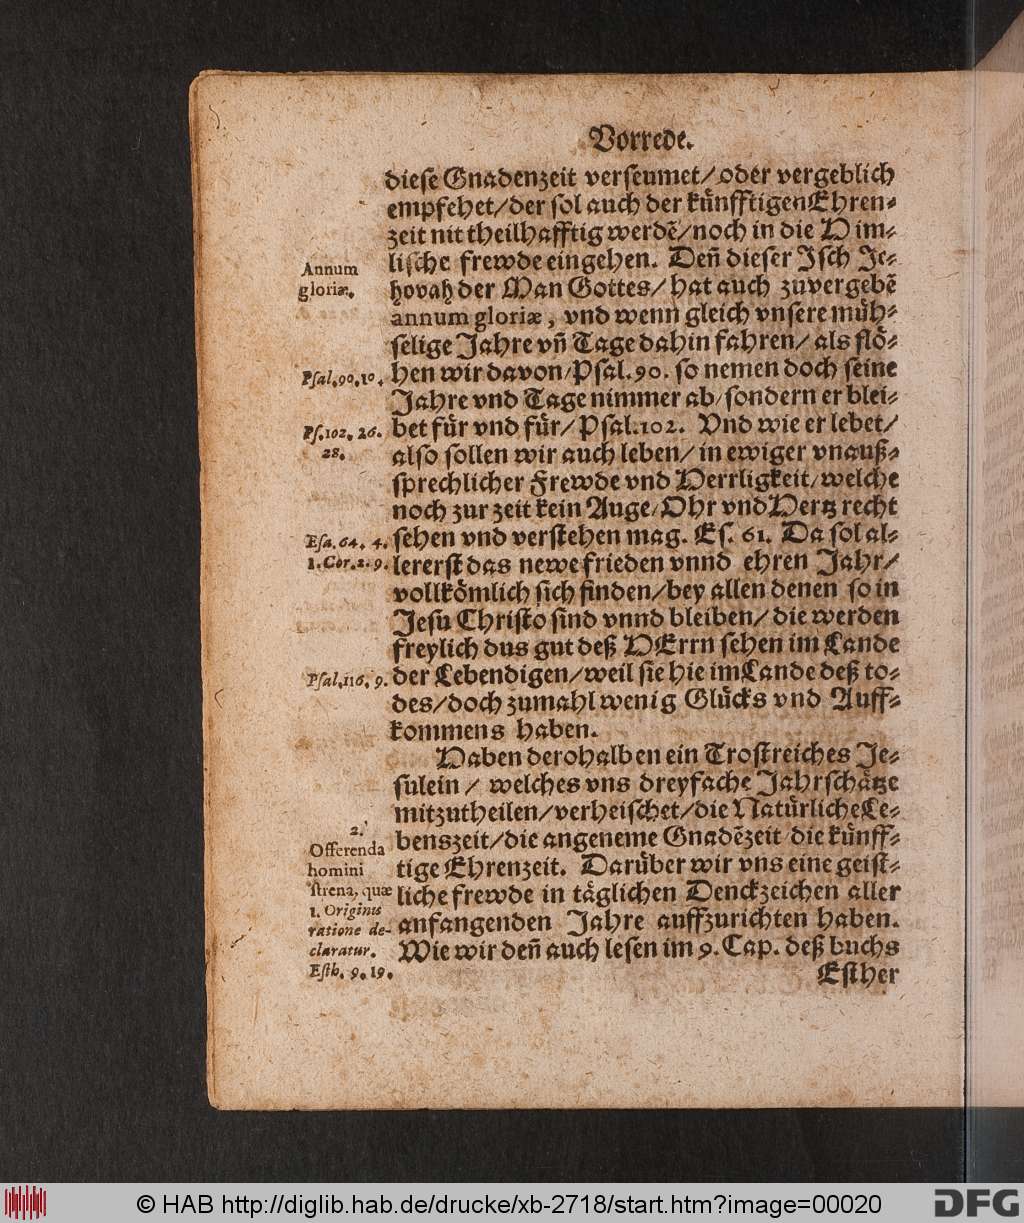 Vorrede.
dieſe Gnadenzeit verſeumet/ oder vergeblich
empfehet/ der ſol auch der kuͤnfftigen Ehren⸗
zeit nit theilhafftig werdẽ/ noch in die Him⸗
liſche frewde eingehen. Deñ dieſer Iſch Je⸗
Annum
gloriæ.
hovah der Man Gottes/ hat auch zuvergebẽ
annum gloriæ, vnd wenn gleich vnſere muͤh⸗
ſelige Jahre vñ Tage dahin fahren/ als floͤ⸗
Pſal. 90. 10.
hen wir davon/ Pſal. 90. ſo nemen doch ſeine
Jahre vnd Tage nimmer ab/ ſondern er blei⸗
Pſ. 102. 26.
28.
bet fuͤr vnd fuͤr/ Pſal. 102. Vnd wie er lebet/
alſo ſollen wir auch leben/ in ewiger vnauß⸗
ſprechlicher Frewde vnd Herrligkeit/ welche
noch zur zeit kein Auge/ Ohr vnd Hertz recht
Eſa. 64. 4.
1. Cor. 2. 9.
ſehen vnd verſtehen mag. Eſ. 61. Da ſol al⸗
lererſt das newe frieden vnnd ehren Jahr/
vollkoͤmlich ſich finden/ bey allen denen ſo in
Jeſu Chriſto ſind vnnd bleiben/ die werden
freylich dus gut deß HErrn ſehen im Lande
Pſal. 116. 9.
der Lebendigen/ weil ſie hie im Lande deß to⸗
des/ doch zumahl wenig Gluͤcks vnd Auff⸗
kommens haben.
Haben derohalben ein Troſtreiches Je⸗
ſulein / welches vns dreyfache Jahrſchaͤtze
mitzutheilen/ verheiſchet/ die Natuͤrliche Le⸗
2.
Offerenda
homini
ſtrena, quæ
1. Originis
ratione de-
claratur.
Eſth. 9. 19.
benszeit/ die angeneme Gnadẽzeit/ die kuͤnff⸗
tige Ehrenzeit. Daruͤber wir vns eine geiſt⸗
liche frewde in taͤglichen Denckzeichen aller
anfangenden Jahre auffzurichten haben.
Wie wir deñ auch leſen im 9. Cap. deß buchs
Eſther
© HAB http://diglib.hab.de/drucke/xb-2718/start.htm?image=00020
DFG